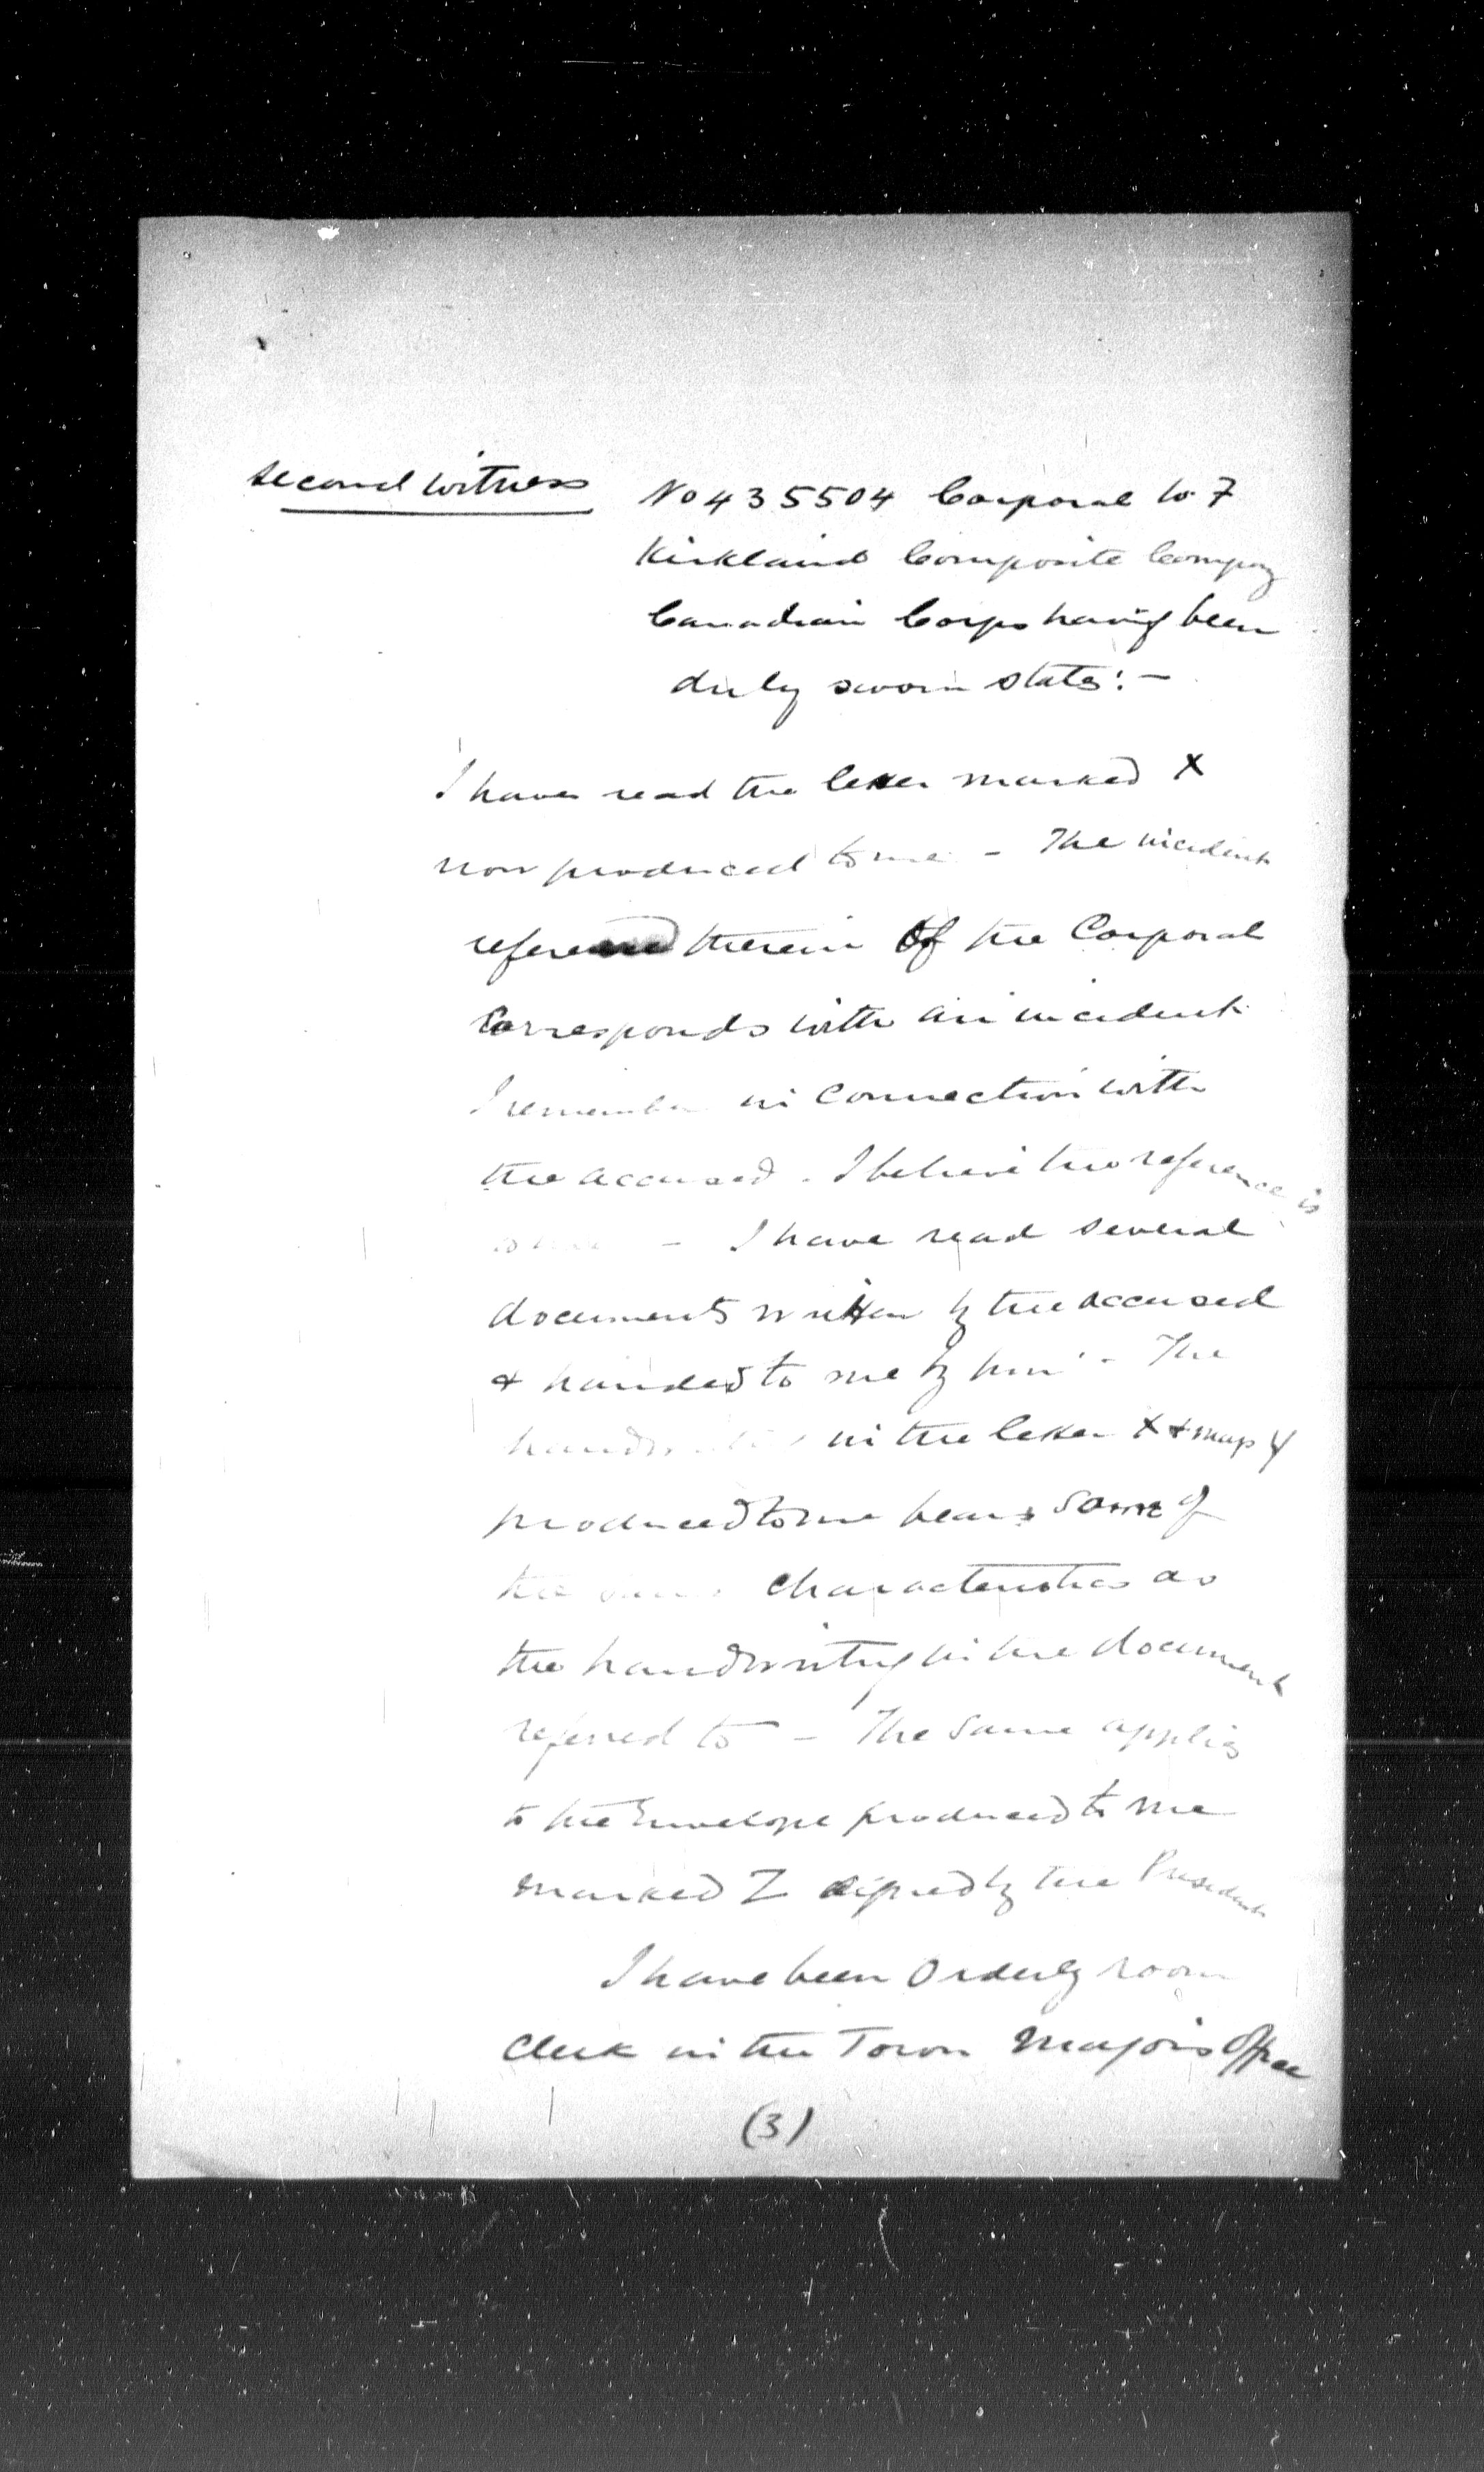 Second Witness
No 435504 Corporal W. F
Kirkland Composite Company
Canadian Corps having been
duly sworn states: —
I have read the letter marked X
now produced to me - The incident
therein of the Corporal
Corresponds with an incident
I remember in Connection with
the accused. I believe the reference is
— I have read several
documents written by the accused
& handed to me by him - The
handwriting in the letter X & map Y
produced to me bears some of
the same characteristics as
the handwriting in the document
referred to - The same applies
to the Envelope produced to me
marked Z signed by the President
I have been Orderly room
Clerk in the Town Majors Office
(3)